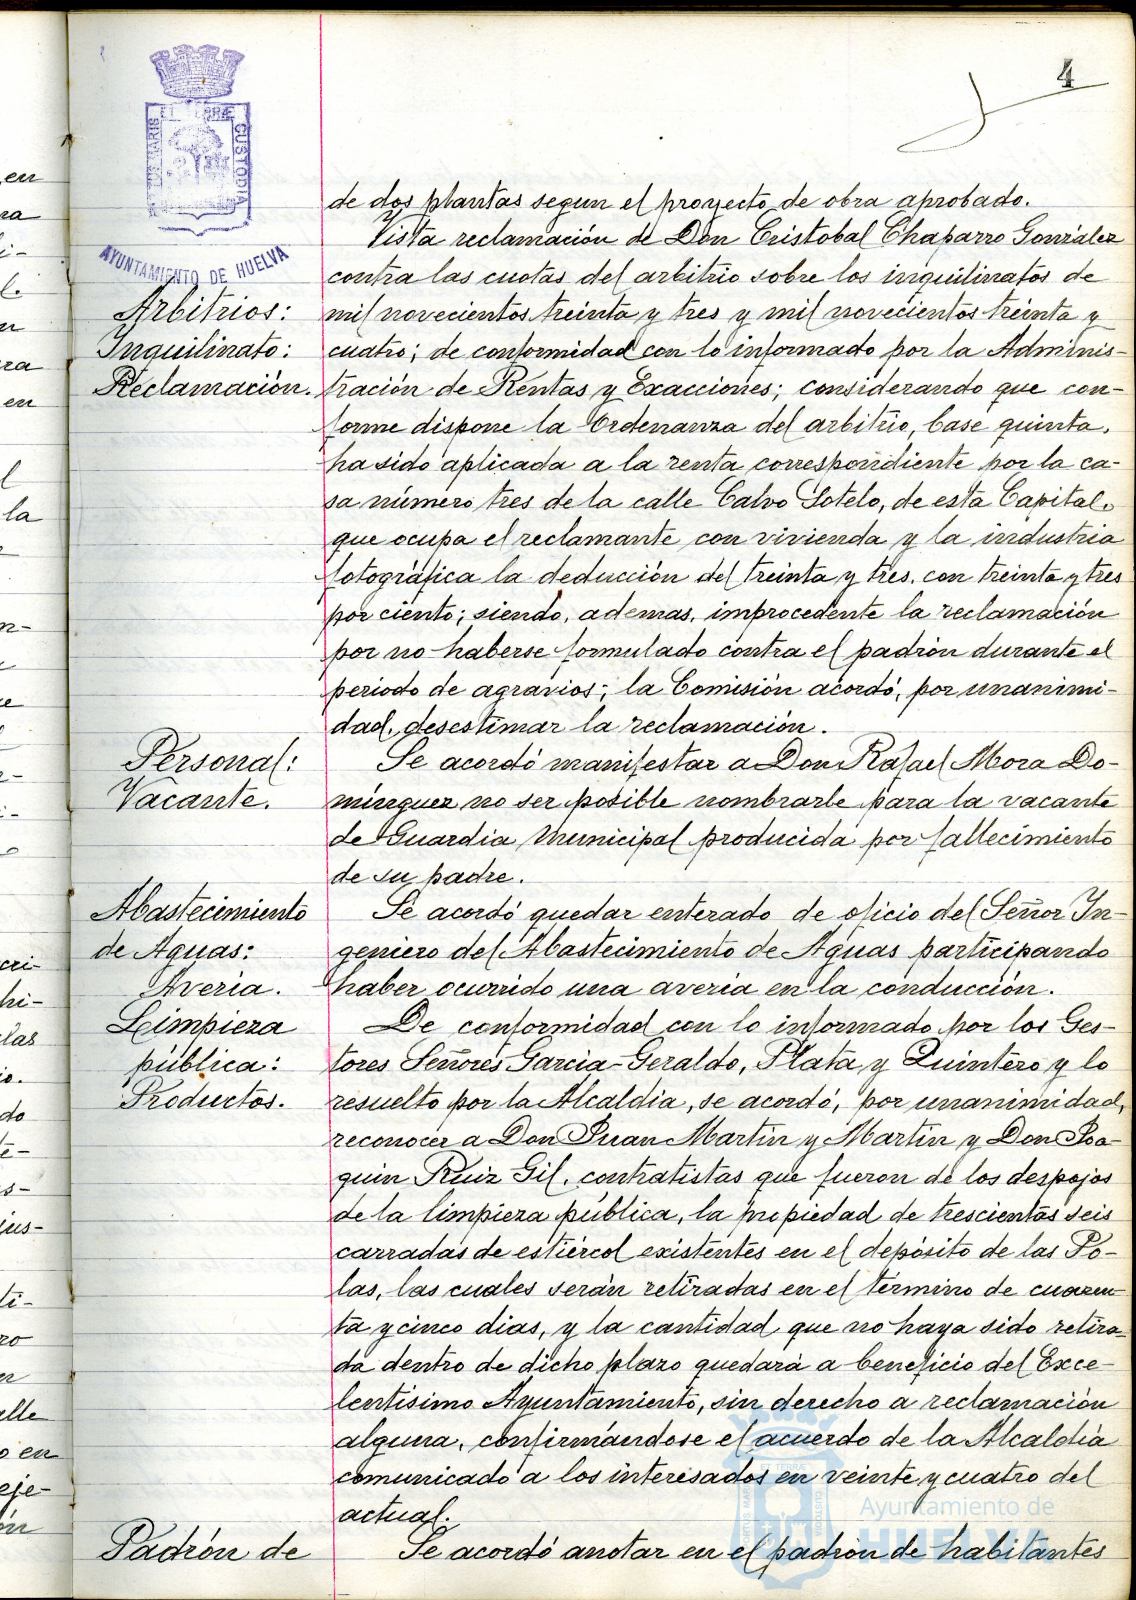 4
PORTUS MARIS ET TERRÆ CUSTODIA
AYUNTAMIENTO DE HUELVA
de dos plantas segun el proyecto de obra aprobado.
Vista reclamación de Don Cristobal Chaparro González
contra las cuotas del arbitrio sobre los inquilinatos de
Arbitrios:
mil novecientos treinta y tres y mil novecientos treinta y
Inquilinato:
cuatro; de conformidad con lo informado por la Adminis-
Reclamación.
tración de Rentas y Exacciones; considerando que con-
forme dispone la Ordenanza del arbitrio, base quinta,
ha sido aplicada a la renta correspondiente por la ca-
sa número tres de la calle Calvo Sotelo, de esta Capital,
que ocupa el reclamante con vivienda y la industria
fotográfica la deducción del treinta y tres, con treinta y tres
por ciento; siendo, ademas, improcedente la reclamación
por no haberse formulado contra el padrón durante el
periodo de agravios; la Comisión acordó, por unanimi-
dad, desestimar la reclamación.
Personal:
Se acordó manifestar a Don Rafael Mora Do-
Vacante.
minguez no ser posible nombrarle para la vacante
de Guardia Municipal producida por fallecimiento
de su padre.
Abastecimiento
Se acordó quedar enterado de oficio del Señor In-
de Aguas:
geniero del Abastecimiento de Aguas participando
Averia.
haber ocurrido una averia en la conducción.
Limpieza
De conformidad con lo informado por los Ges-
pública:
tores Señores Garcia-Geraldo, Plata, y Quintero y lo
Productos.
resuelto por la Alcaldia, se acordó, por unanimidad,
reconocer a Don Juan Martin y Martin y Don Joa-
quin Ruiz Gil, contratistas que fueron de los despojos
de la limpieza pública, la propiedad de trescientas seis
carradas de estiércol existentes en el depósito de las Po-
las, las cuales serán retiradas en el término de cuaren-
ta y cinco dias, y la cantidad que no haya sido retira-
da dentro de dicho plazo quedará a beneficio del Exce-
lentisimo Ayuntamiento, sin derecho a reclamación
alguna, confirmándose el acuerdo de la Alcaldia
comunicado a los interesados en veinte y cuatro del
actual.
Padrón de
Se acordó anotar en el padron de habitantes
Ayuntamiento de
HUELVA